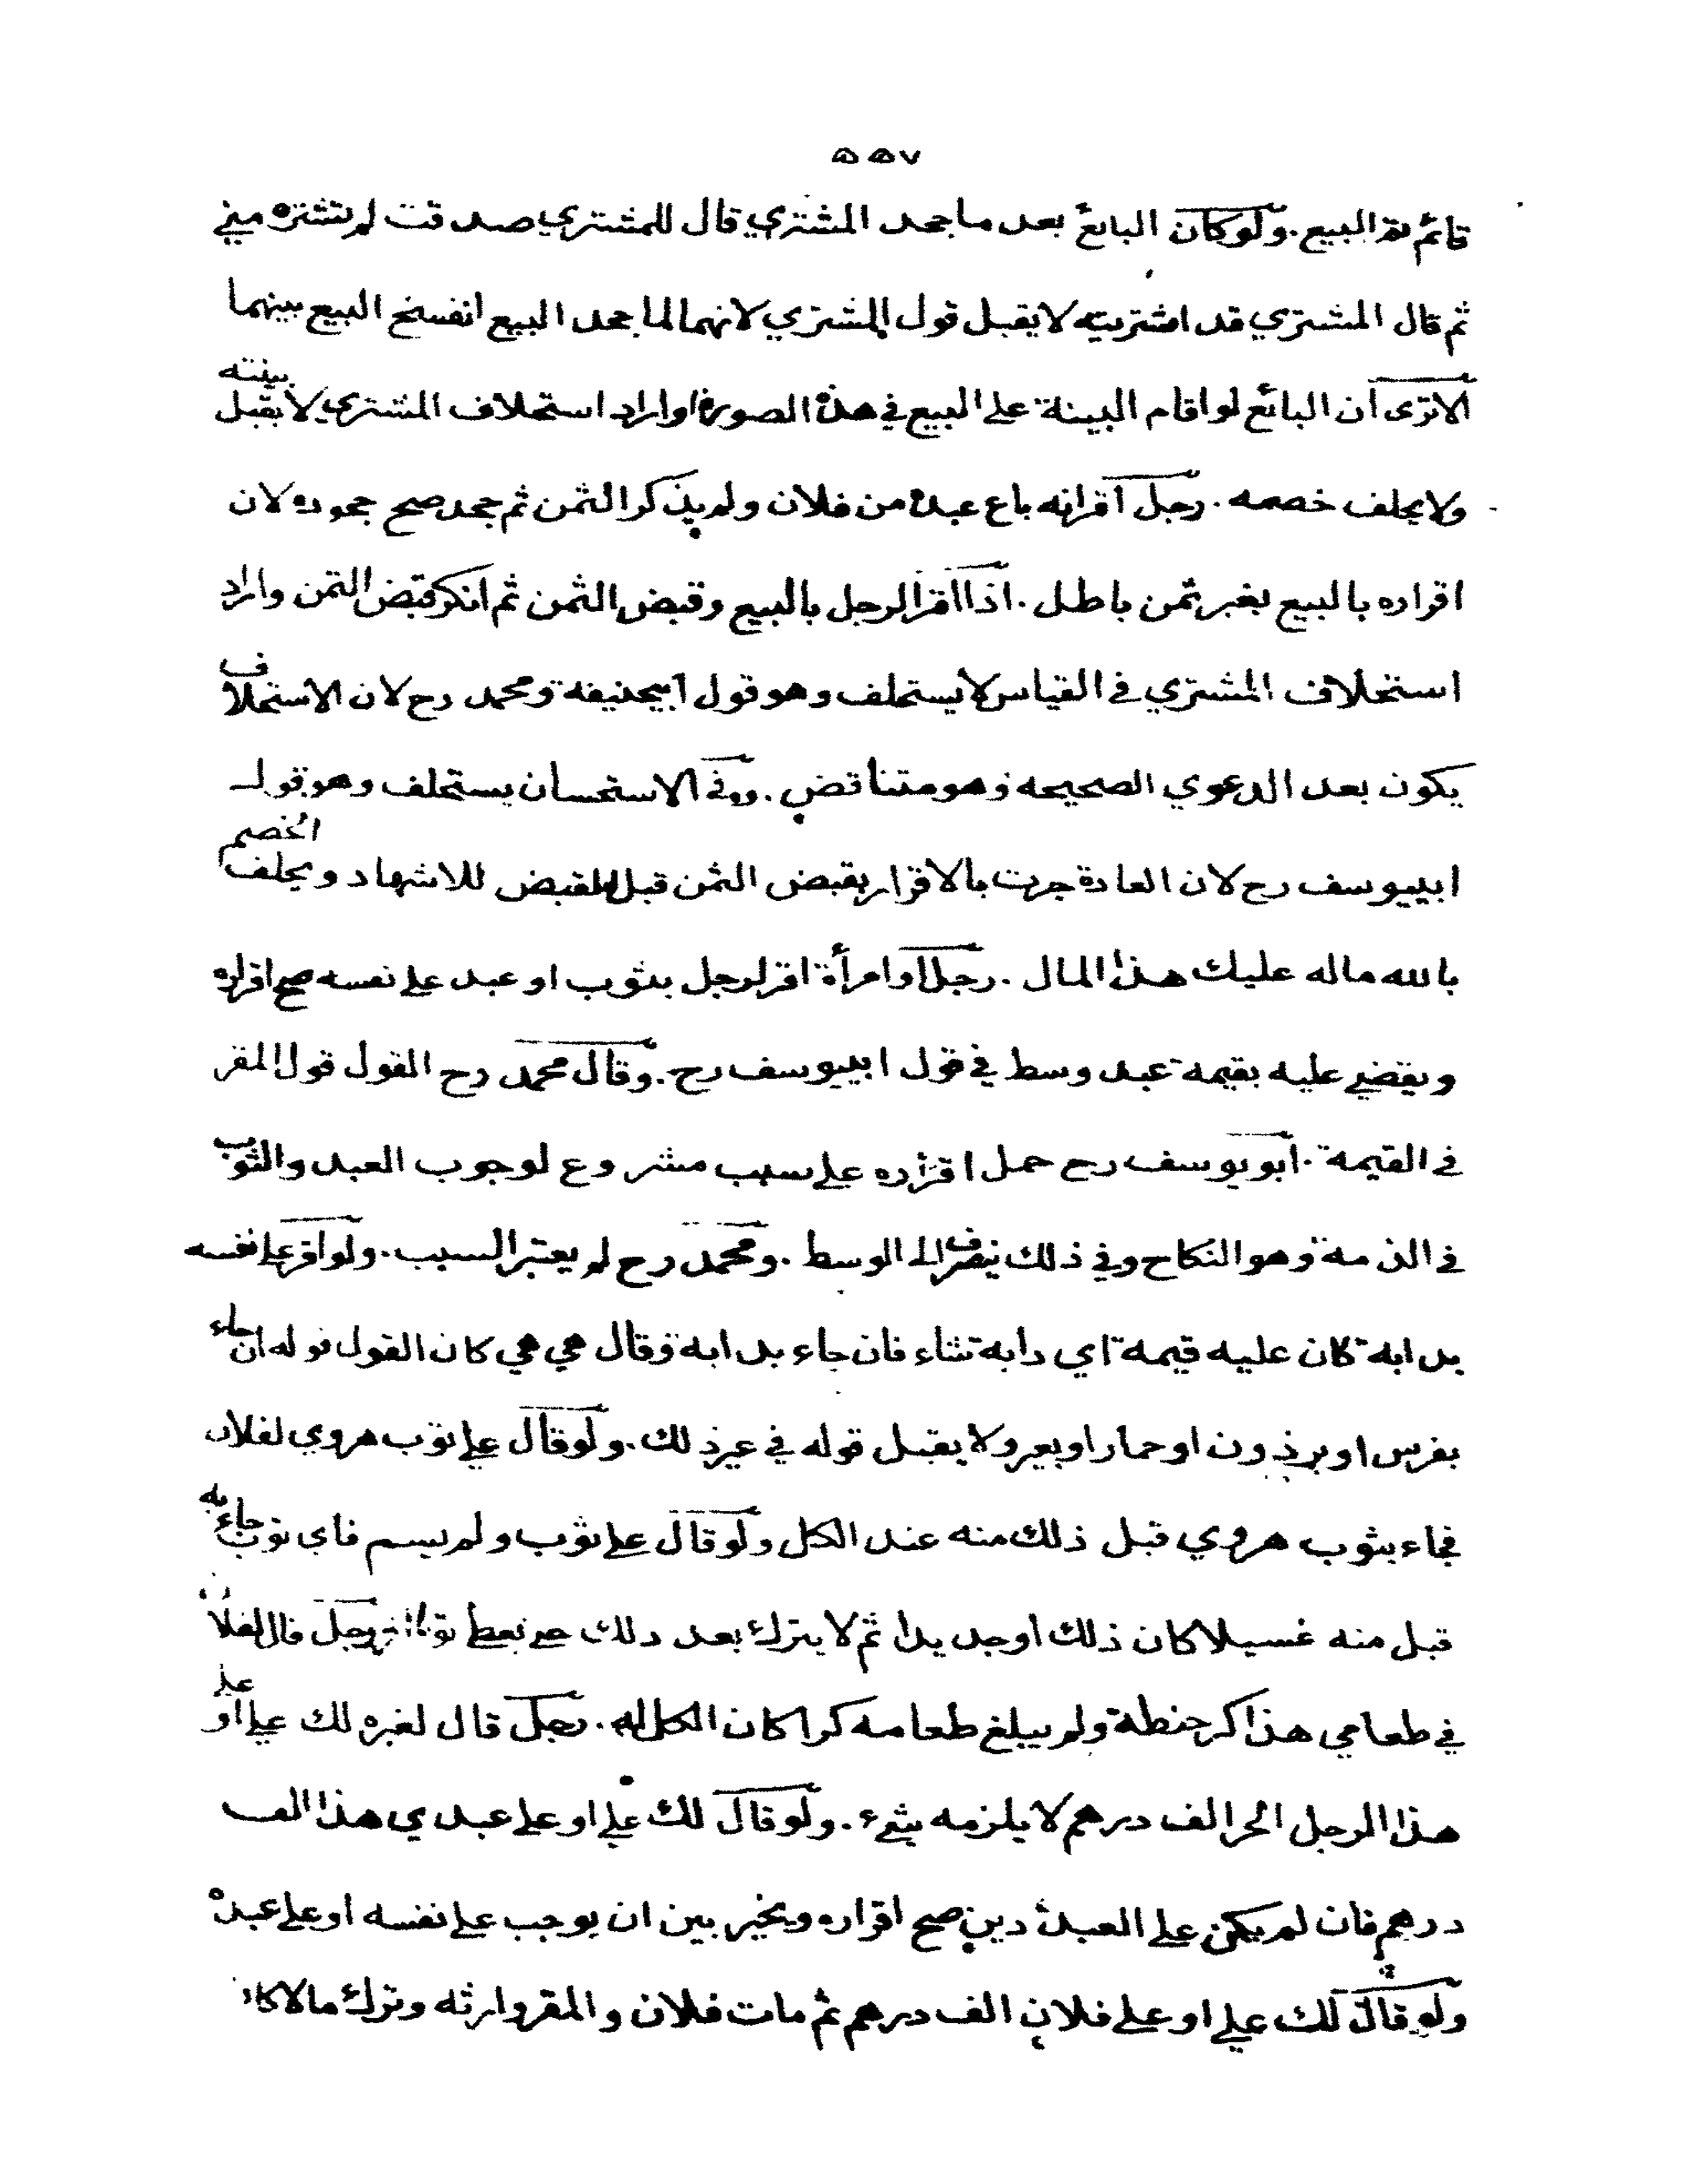 ٥٥٧
قائم لم البيع . ولو كان البائع بعد ما جحد المشتري قال للمشتري صدقت لم تشتره مني
ثم قال المشتري قد اشتريته لا يقبل قول المشتري لانهما لما جحد البيع انفسخ البيع بينهما
الا ترى ان البائع لو اقام البينة على البيع في هذه الصورة او اراد استحلاف المشتري لا يقبل بينته
ولا يحلف خصمه . رجل اقر انه باع عبده من فلان ولم يذكر الثمن ثم جحد صح جحوده لان
اقراره بالبيع بغير ثمن باطل . اذا اقر الرجل بالبيع وقبض الثمن ثم انكر قبض الثمن واراد
استحلاف المشتري في القياس لا يستحلف وهو قول ابيحنيفة ومحمد رح لان الاستحلاف
يكون بعد الدعوي الصحيحه وهو متناقض . وفي الاستحسان يستحلف وهو قول
ابييوسف رح لان العادة جرت بالاقرار بقبض الثمن قبل القبض للاشهاد ويحلف الخصم
بالله ماله عليك هذا المال . رجل او امرأة اقر لرجل بثوب او عبد على نفسه صح اقراره
ويقضي عليه بقيمة عبد وسط في قول ابييوسف رح . وقال محمد رح القول قول المقر
في القيمة . ابو يوسف رح حمل اقراره على سبب مشروع لوجوب العبد والثوب
في الذمة وهو النكاح وفي ذلك ينصرف الى الوسط . ومحمد رح لم يعتبر السبب . ولو اقر على نفسه
بدابة كان عليه قيمة اي دابة شاء فان جاء بدابة وقال هي هي كان القول قوله ان جاء
بفرس او برذون او حمار او بعير ولا يقبل قوله في غير ذلك . ولو قال علي ثوب هروي لفلان
فجاء بثوب هروي قبل ذلك منه عند الكل ولو قال علي ثوب ولم يسم فاي ثوب جاء به
قبل منه غسيلا كان ذلك او جديدا ثم لا يترك بعد ذلك حتى يعطي ثوبا . رجل قال لفلان
في طعامي هذا كر حنطة ولم يبلغ طعامه كرا كان الكل له . رجل قال لغيره لك علي او على
هذا الرجل الحر الف درهم لا يلزمه شيء . ولو قال لك علي او على عبدي هذا الف
درهم فان لم يكن على العبد دين صح اقراره ويخير بين ان يوجب على نفسه او على عبده
ولو قال لك علي او على فلان الف درهم ثم مات فلان والمقر وارثه وترك مالا كان